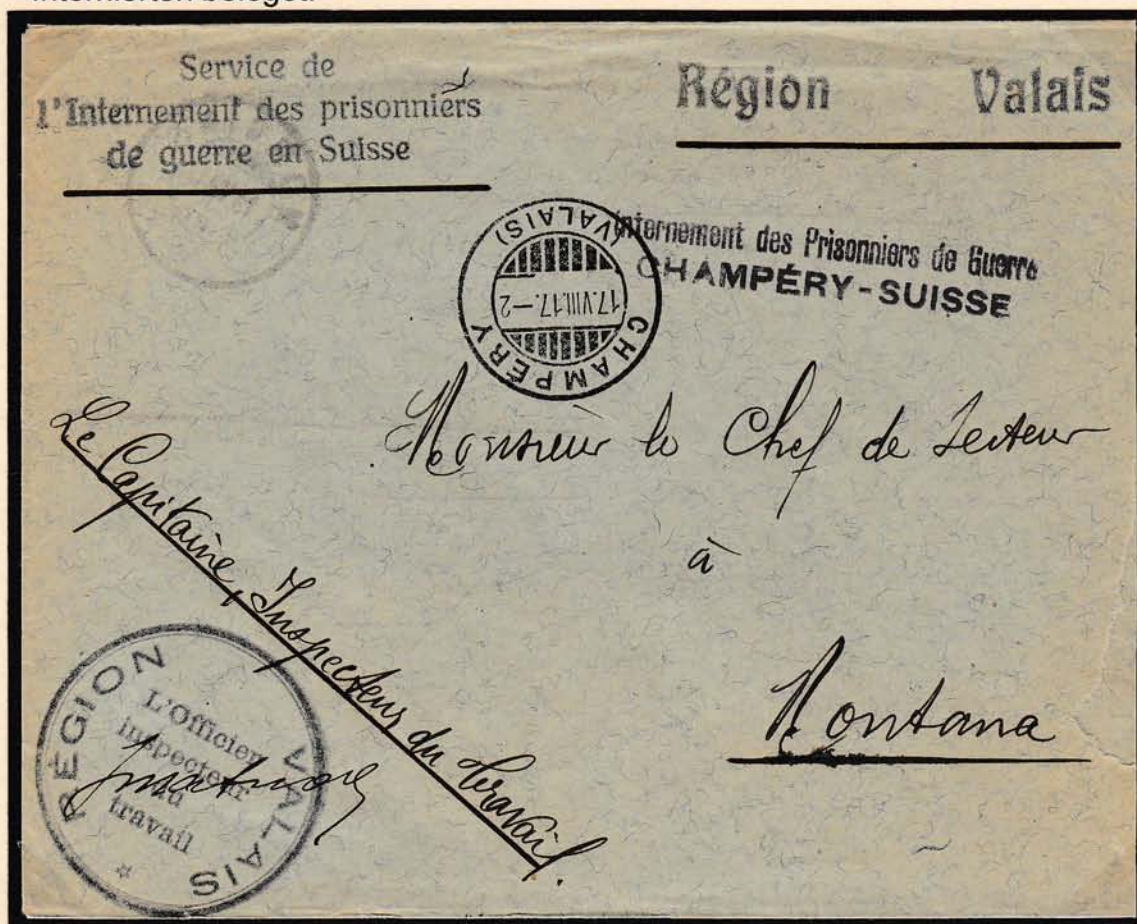 Service de
l'Internement des prisonniers
de guerre en Suisse
Région Valais
Internement des Prisonniers de Guerre
CHAMPÉRY-SUISSE
CHAMPÉRY
17.VIII.17.–2
(VALAIS)
Monsieur le Chef de Secteur
à
Montana
Le Capitaine, Inspecteur du travail.
RÉGION VALAIS
L'Officier
inspecteur
du
travail